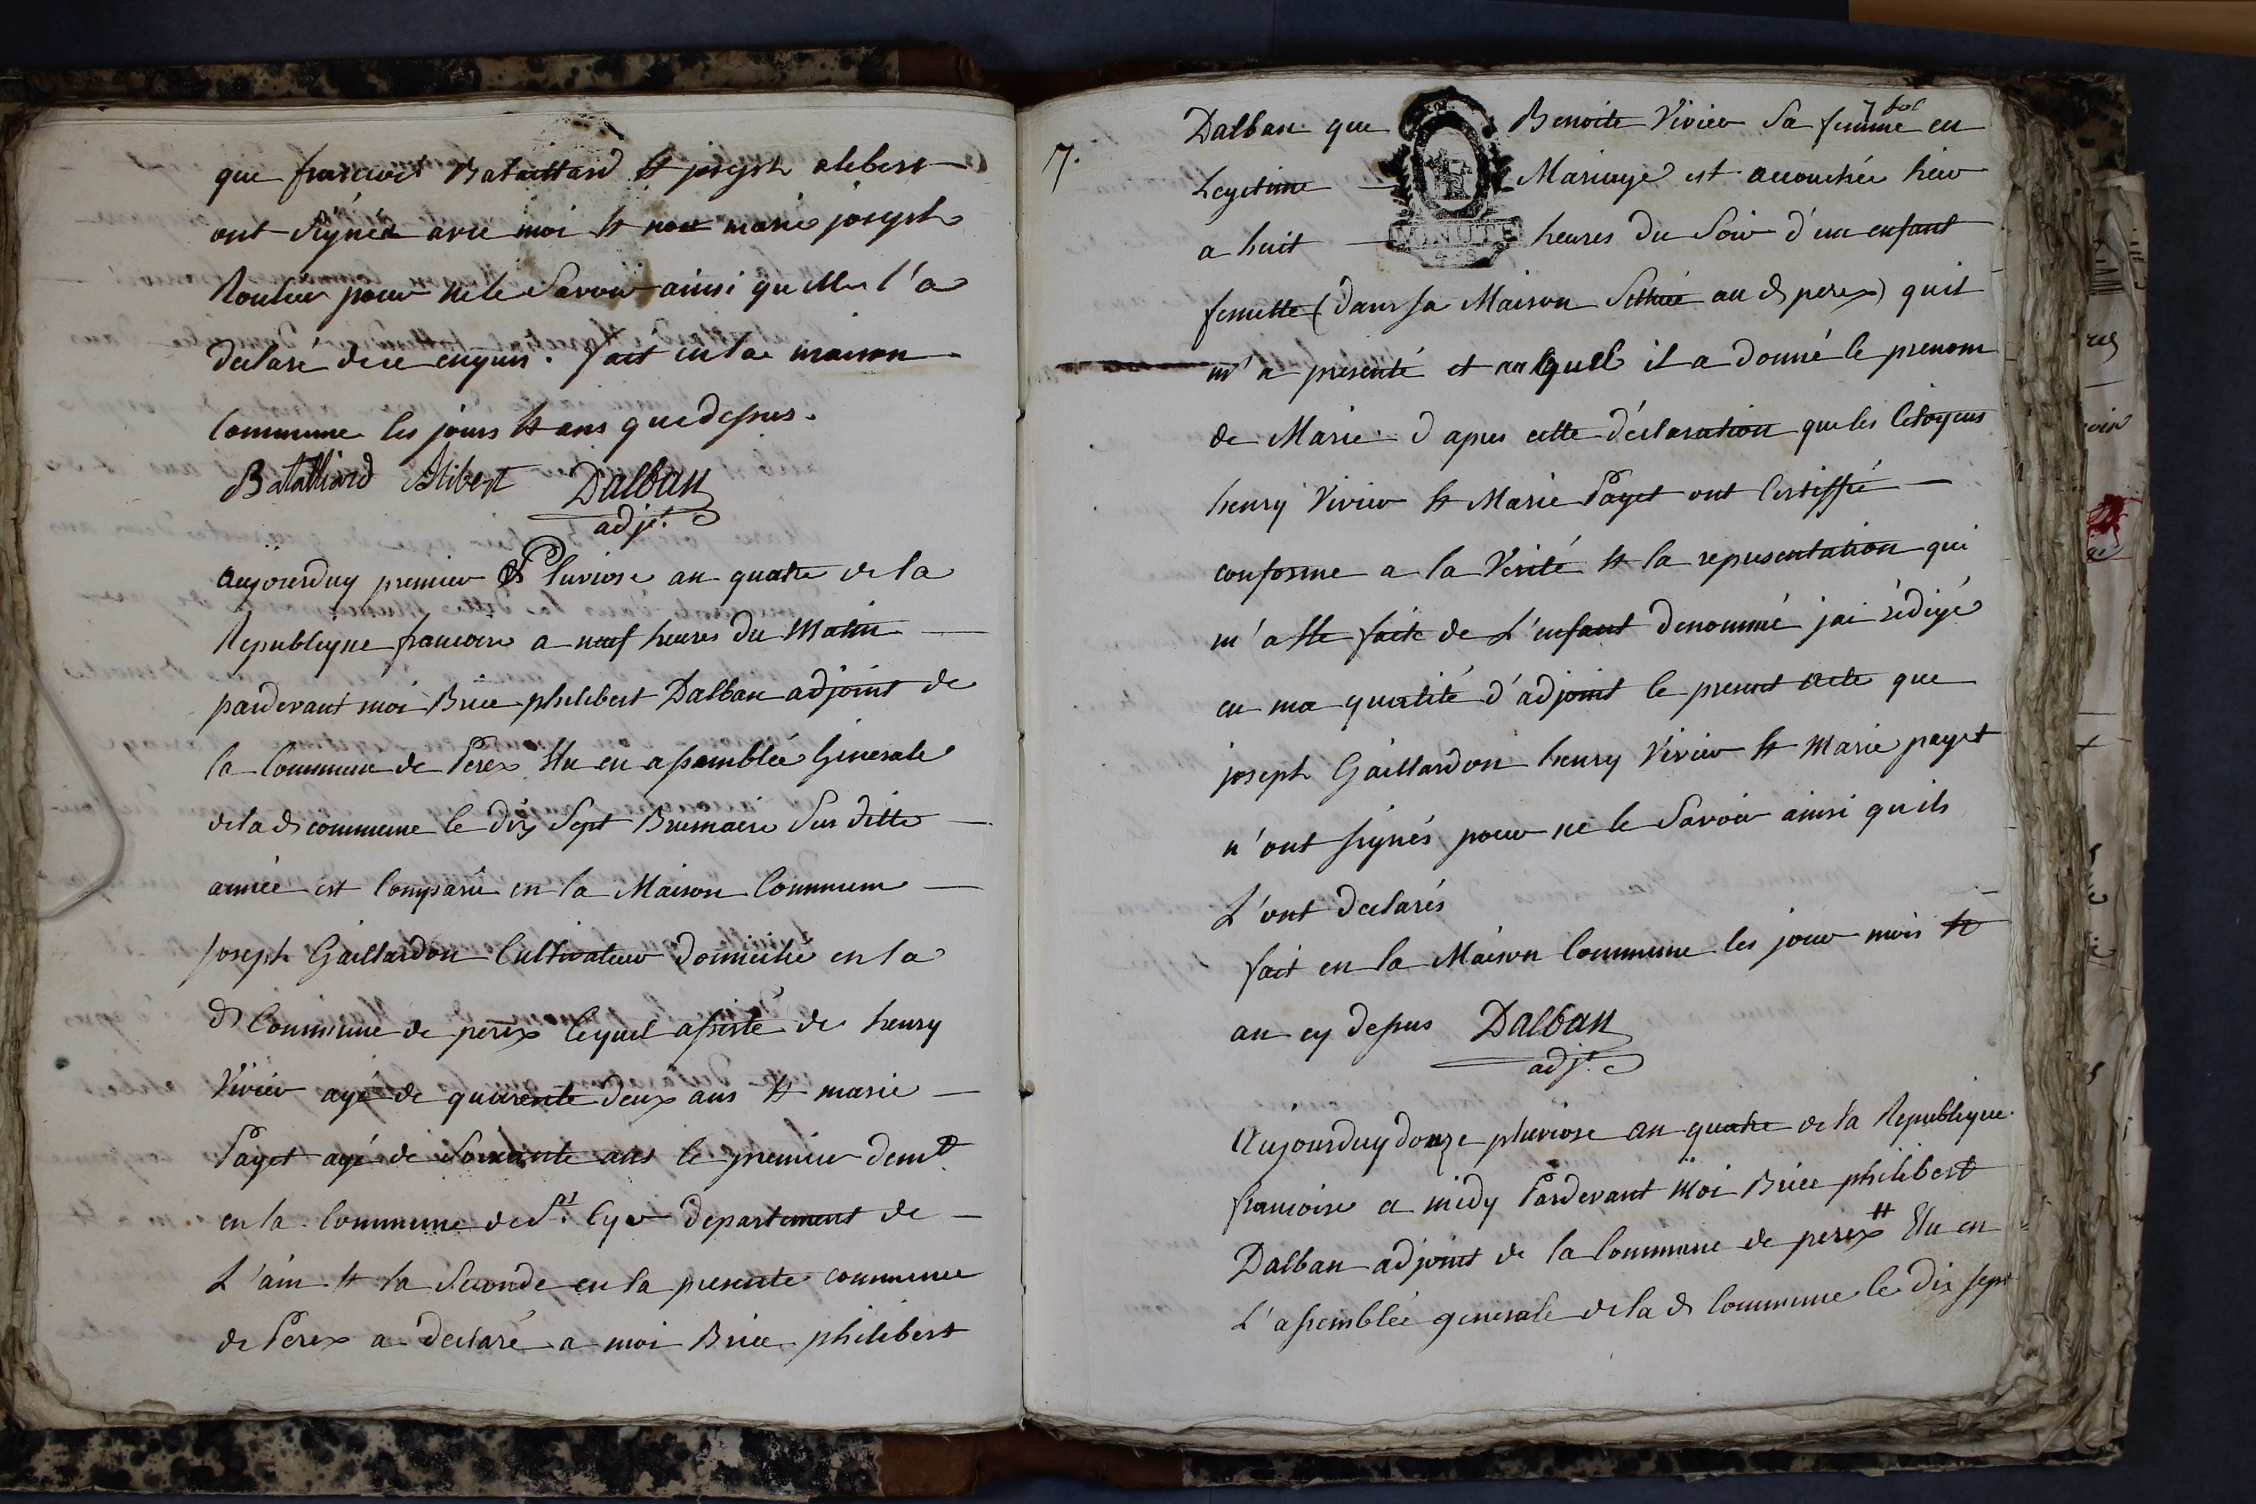 que francois Bataillard & joseph alibert
ont signés avec moi & non marie joseph
Roulier pour ne le savoir ainsi qu'elle l'a
declaré de ce enquis. fait en la maison
Commune les jours & ans que depus.
Batalliard Alibert Dalban
adjt.
aujourduy premier Pluviose an quatre de la
Republique francoise a neuf heures du Matin
pardevant moi Brice philibert Dalban adjoint de
la Commune de Perex Elu en assemblée Generale
de la de commune le dix Sept Brumaire Sus ditte
année est Comparu en la Maison Commune
Joseph Gaillardon Cultivateur domicilié en la
de Commune de perex lequel assisté de henry
Vivier agé de quarente deux ans & marie
Payet agé de Soixante ans le premier demt
en la Commune de St. Cyr departement de
L'ain & la Seconde en la presente commune
de Perex a declaré a moi Brice philibert
7 fol
7.
Dalban que Benoite Vivier Sa femme en
Legitime Mariage est accouchée hier
a huit heures du Soir d'un enfant
MINUTE
femelle (dans sa Maison Sittuée au d perex) quil
m'a presenté et auquel il a donné le prenom
de Marie d apres cette déclaration que les Citoyens
henry Vivier & Marie Payet ont Certiffié
conforme a la Verité & la representation qui
m'a ete faite de L'enfant denommé jai rédigé
en ma quallité d'adjoint le present acte que
joseph Gaillardon henry Vivier & Marie payet
n'ont signés pour ne le Savoir ainsi qu'ils
L'ont declarés
fait en la Maison Commune les jour mois &
an cy depus Dalban
adjt.
Aujourduy douze pluviose an quatre de la Republique
francoise a midy Pardevant Moi Brice philibert
Dalban adjoint de la Commune de perex Elu en
L'assemblée generale de la de Commune le dix sept